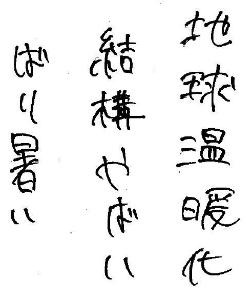 地球温暖化
結構やばい
ばり暑い